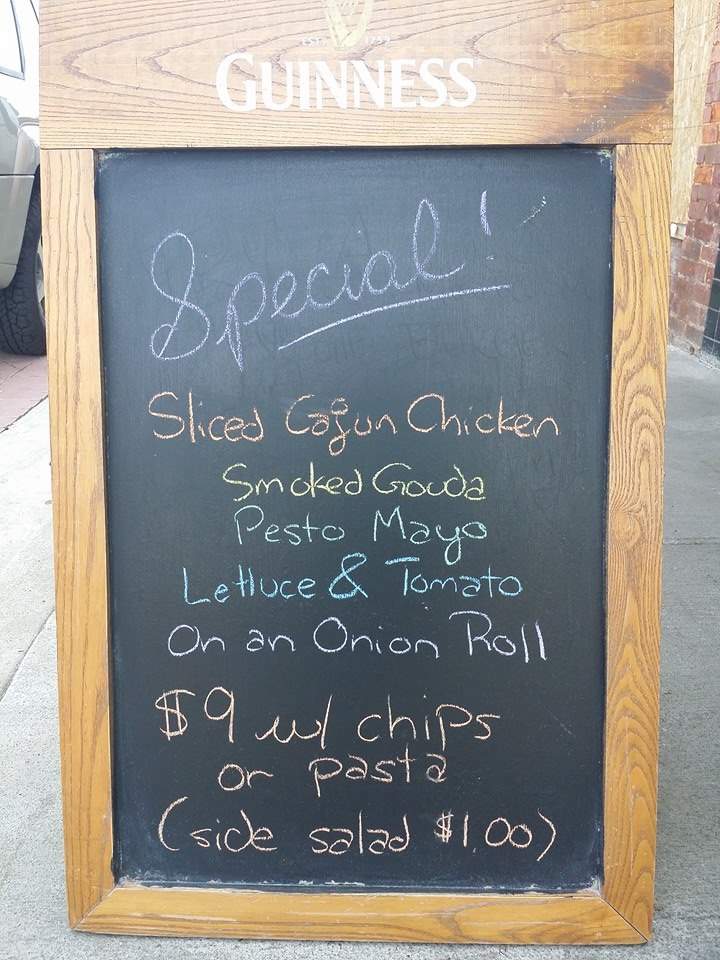 EST. 1759
GUINNESS
Special!
Sliced Cajun Chicken
Smoked Gouda
Pesto Mayo
Lettuce & Tomato
On an Onion Roll
$9 w/ chips
or pasta
(side salad $1.00)